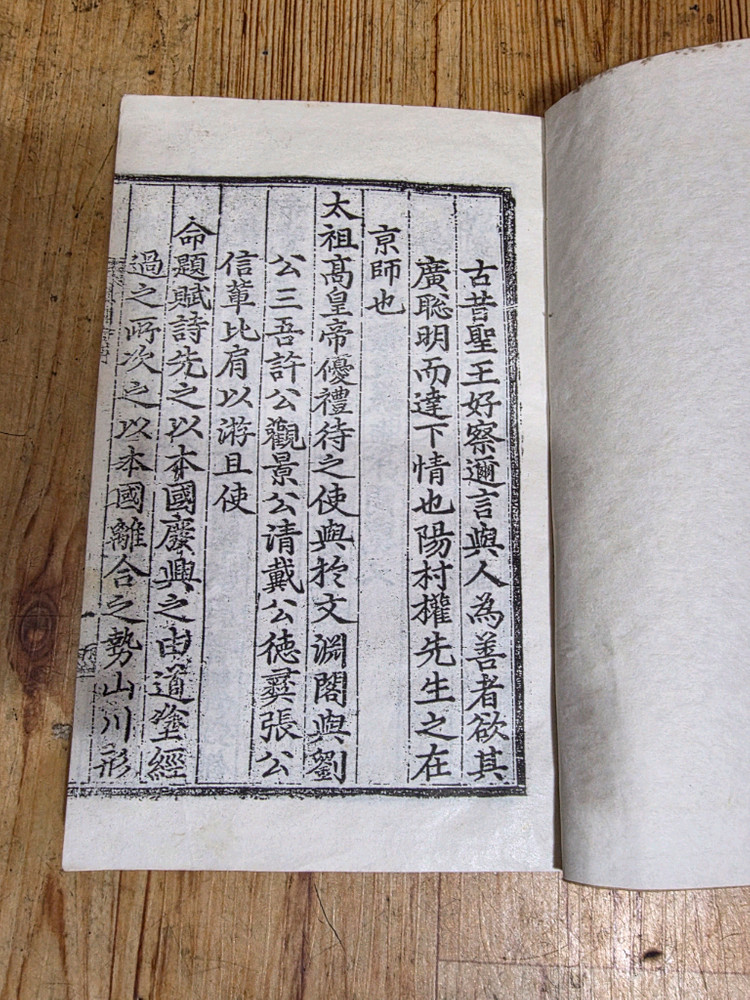 古昔聖王好察邇言與人為善者欲其
廣聡明而達下情也陽村權先生之在
亰師也
太祖高皇帝優禮待之使與於文淵閣與劉
公三吾許公觀景公清戴公徳彛張公
信軰比肩以游且使
命題賦詩先之以本國廢興之由道塗經
過之所次之以本國離合之勢山川形